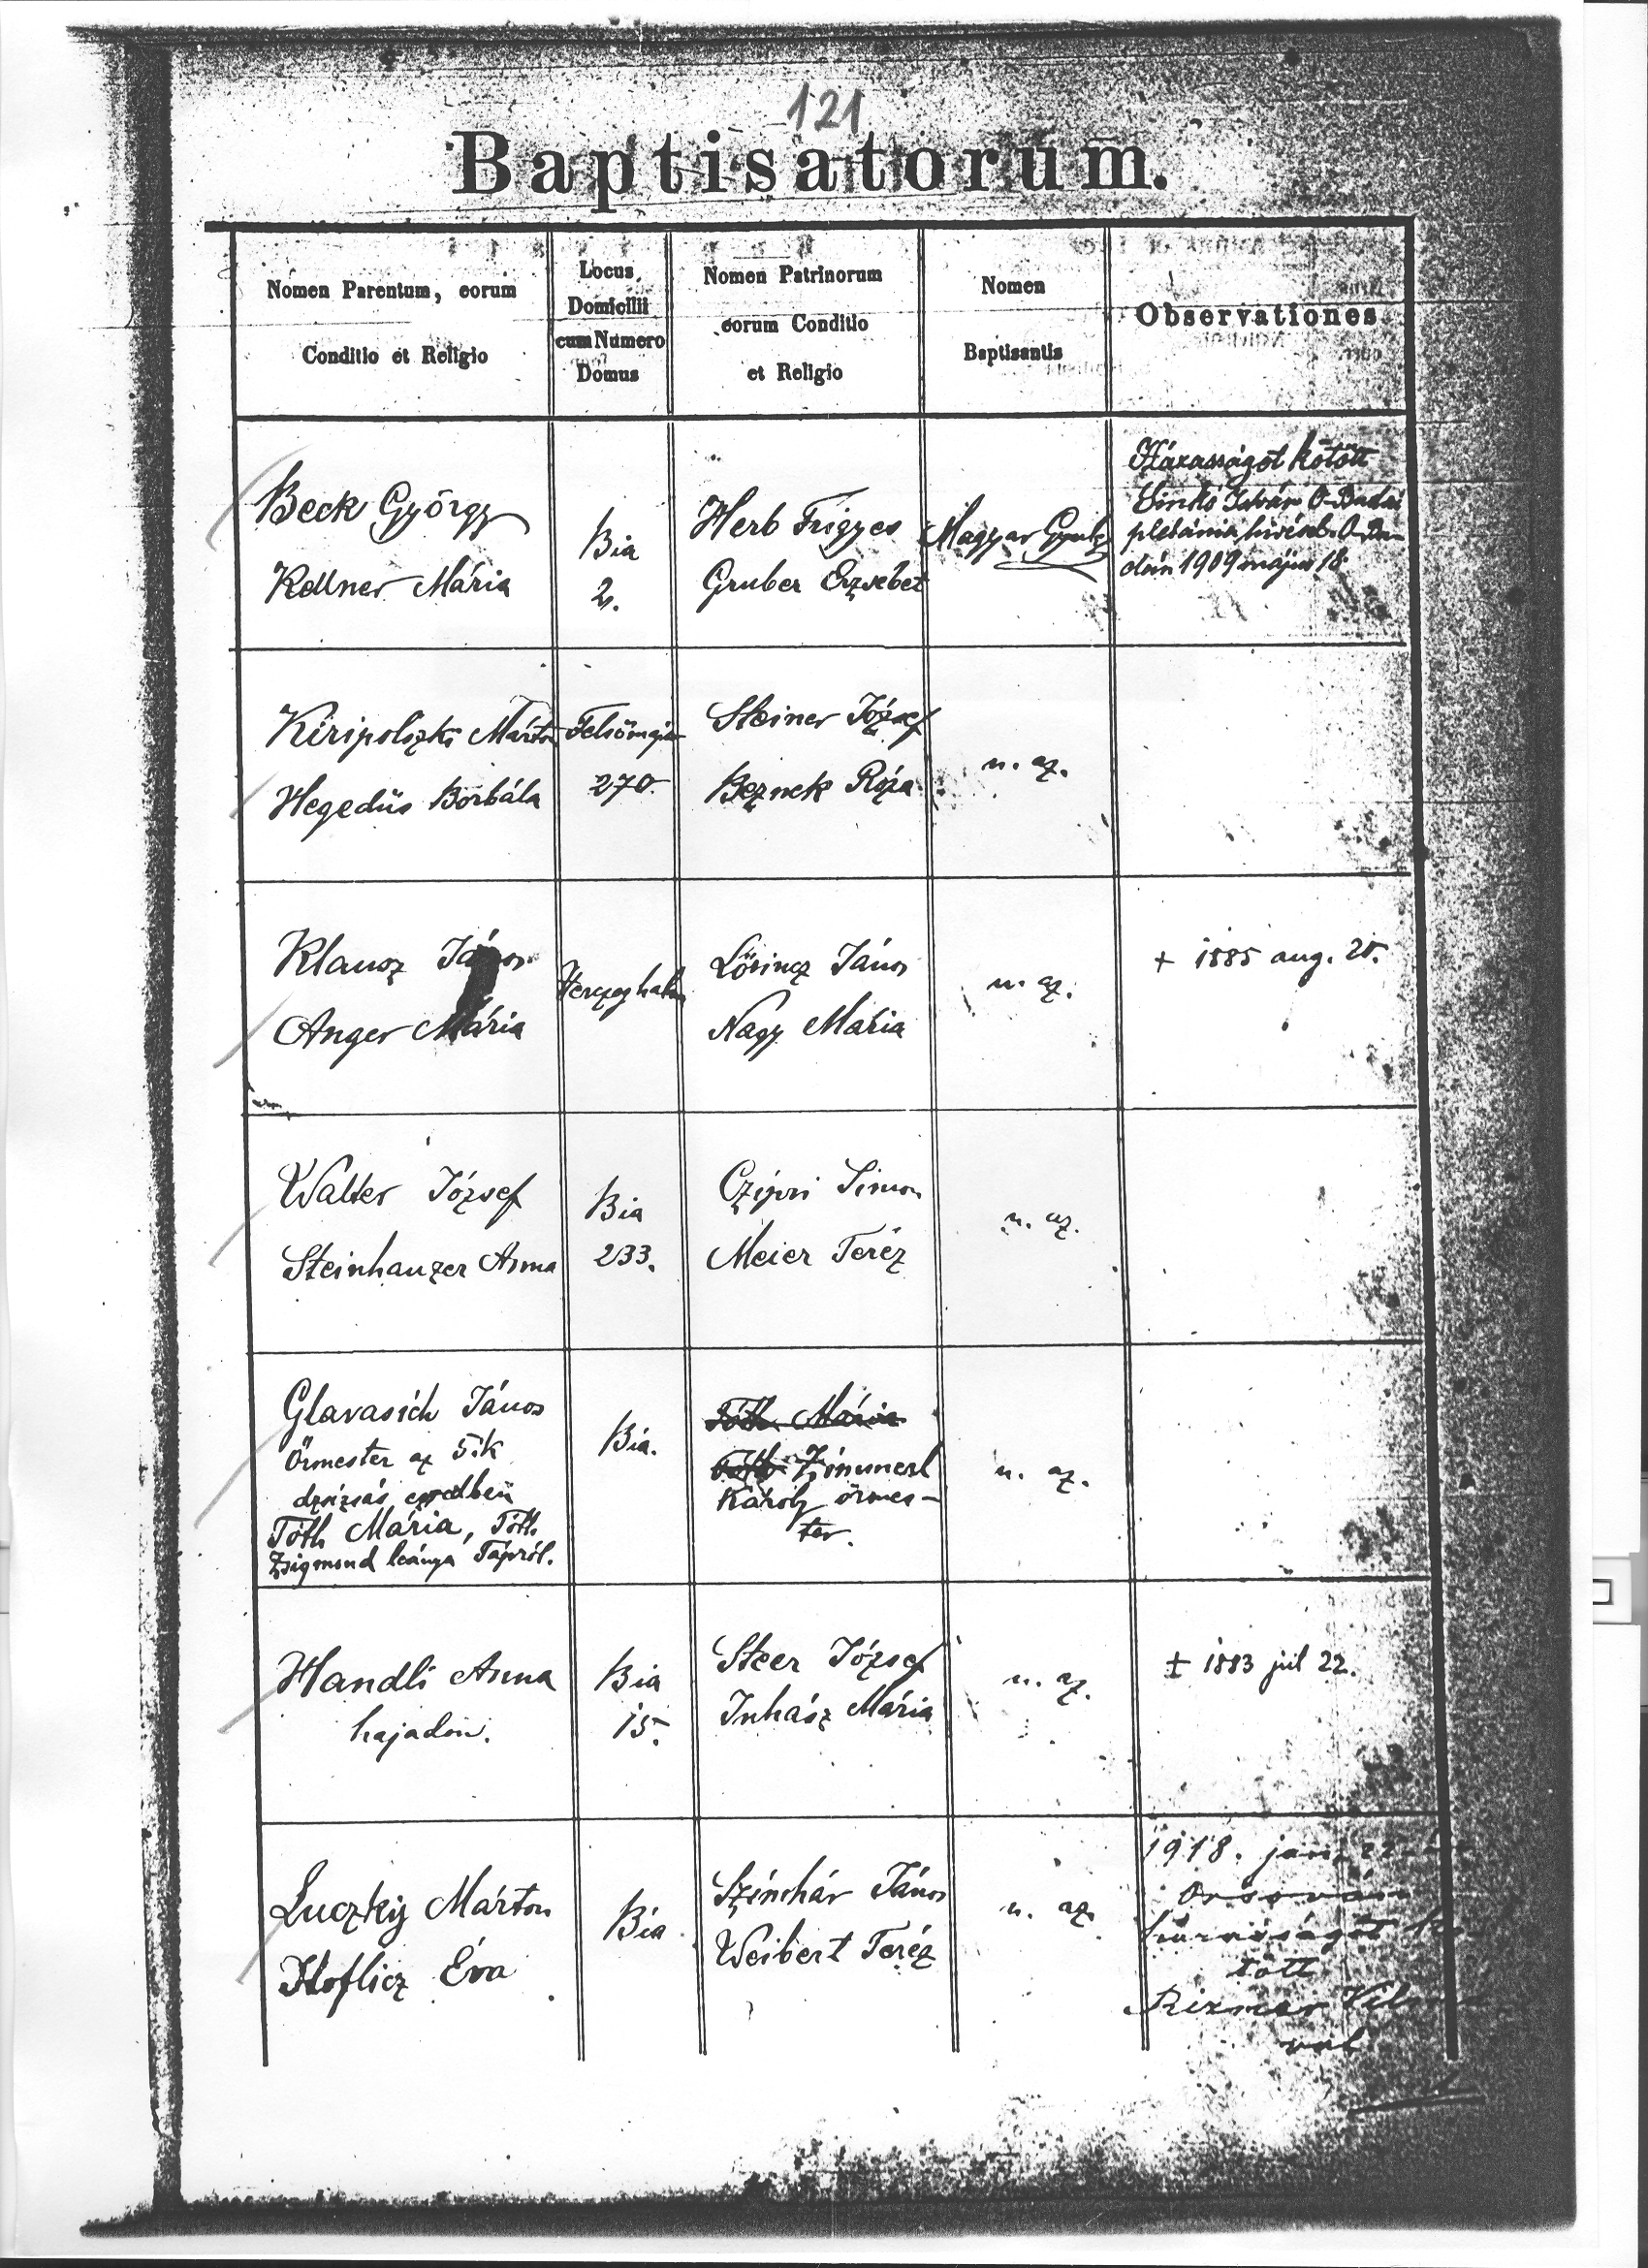 121
Baptisatorum.
Nomen Parentum, eorum
Conditio et Religio
Locus
Domicilii
cum Numero
Domus
Nomen Patrinorum
eorum Conditio
et Religio
Nomen
Baptisantis
Observationes
Beck György
Kellner Mária
Bia
2.
Herb Frigyes
Gruber Erzsébet
Magyar Gyula
Házasságot kötött
Sinkó István O-Budai
plébánia O-Bu-
dán 1909 május 18.
Kiripolszki Márton
Hegedüs Borbála
270.
Steiner József
Beznek Róza
u. az.
Klausz János
Anger Mária
Herczeghalom
Lőrincz János
Nagy Mária
u. az.
+ 1885 aug. 20.
Walter József
Steinhauzer Anna
Bia
233.
Czipri Simon
Meier Teréz
u. az.
Glavasich János
Örmester az 5. k
dzsidás ezredben
Tóth Mária, Tóth
Zsigmond leánya Tápról.
Bia.
Tóth Mária
Tóth Zimmerl
Károly örmes-
ter.
u. az.
Handli Anna
hajadon.
Bia
15.
Steer József
Juhász Mária
u. az.
+ 1883 júl 22.
Luczky Márton
Hoflicz Éva
Bia
Színhár János
Weibert Teréz
u. az.
1918. jan. 22
házasságot kö
tött
Rizmar Vilma
val